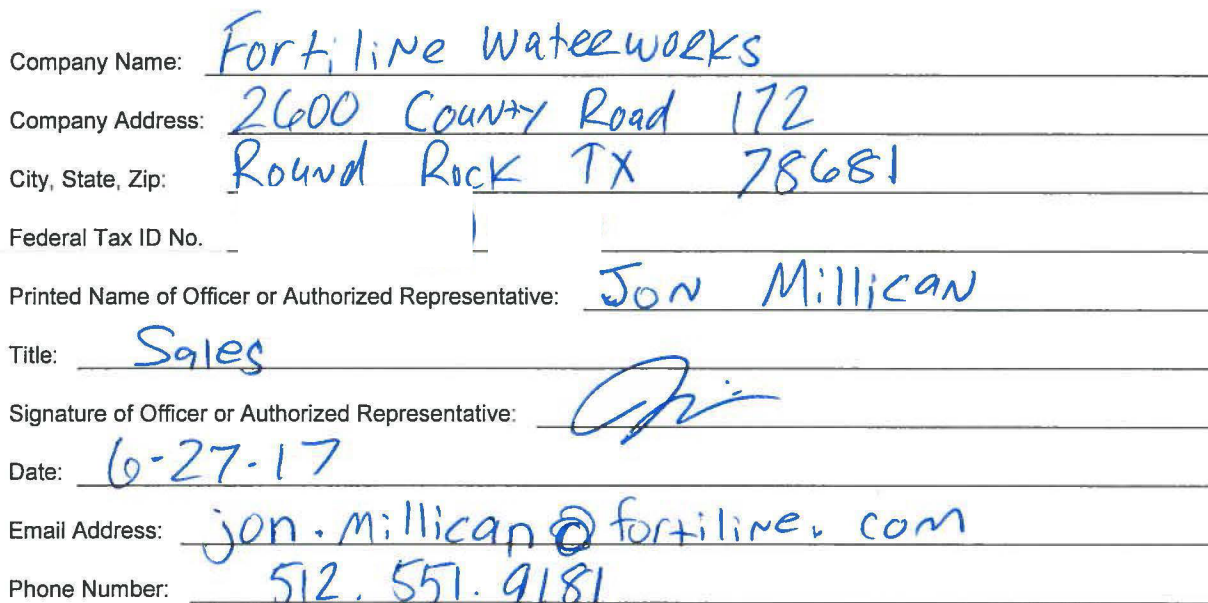 Company Name: Fortiline Waterworks
Company Address: 2600 County Road 172
City, State, Zip: Round Rock TX 78681
Federal Tax ID No.
Printed Name of Officer or Authorized Representative: Jon Millican
Title: Sales
Signature of Officer or Authorized Representative:
Date: 6-27-17
Email Address: jon.millican@fortiline.com
Phone Number: 512.551.9181